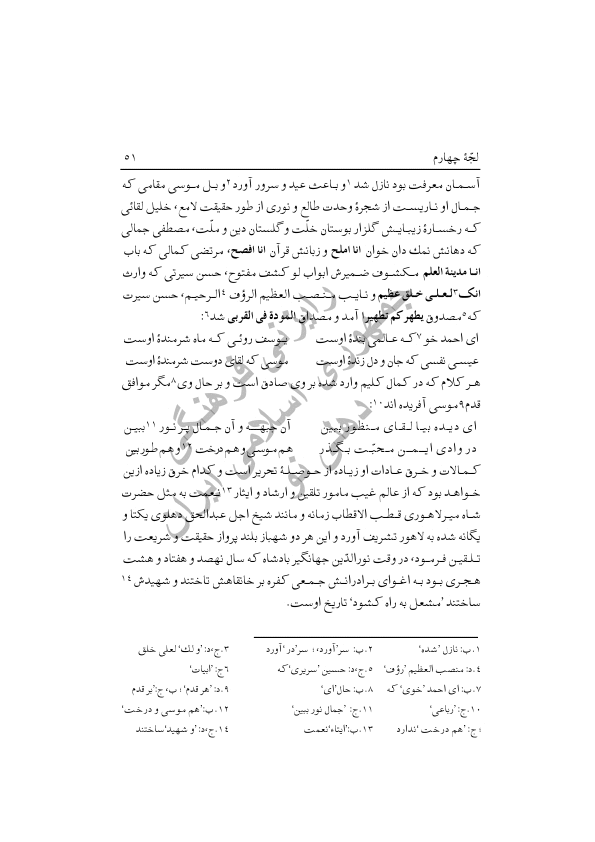 لجّهٔ چهارم ۵۱
آسمان معرفت بود نازل شد۱ و باعث عید و سرور آورد۲ و بل موسی مقامی که
جمال او ناریست از شجرهٔ وحدت طالع و نوری از طور حقیقت لامع، خلیل لقائی
که رخسارهٔ زیبایش گلزار بوستان خلّت و گلستان دین و ملّت، مصطفی جمالی
که دهانش نمك دان خوان انا املح و زبانش قرآن انا افصح، مرتضی کمالی که باب
انا مدینة العلم مکشوف ضمیرش ابواب لو کشف مفتوح، حسن سیرتی که وارث
انک۳ لعلی خلق عظیم و نایب منصب العظیم الرؤف۴ الرحیم، حسن سیرت
که۵ مصدوق یطهرکم تطهیرا آمد و مصداق المودة فی القربی شد۶:
ای احمد خو۷ که عالمی بندهٔ اوست یوسف روئی که ماه شرمندهٔ اوست
عیسی نفسی که جان و دل زندهٔ اوست موسی که لقای دوست شرمندهٔ اوست
هر کلام که در کمال کلیم وارد شده بر وی صادق است و بر حال وی۸ مگر موافق
قدم۹ موسی آفریده اند۱۰:
ای دیده بیا لقای منظور ببین آن جبهه و آن جمال پر نور۱۱ ببین
در وادی ایمن محبّت بگذر هم موسی و هم درخت۱۲ و هم طور بین
کمالات و خرق عادات او زیاده از حوصلهٔ تحریر است و کدام خرق زیاده ازین
خواهد بود که از عالم غیب مامور تلقین و ارشاد و ایثار۱۳ نیعمت به مثل حضرت
شاه میر لاهوری قطب الاقطاب زمانه و مانند شیخ اجل عبدالحق دهلوی یکتا و
یگانه شده به لاهور تشریف آورد و این هر دو شهباز بلند پرواز حقیقت و شریعت را
تلقین فرمود، در وقت نورالدّین جهانگیر بادشاه که سال نهصد و هفتاد و هشت
هجری بود به اغوای برادرانش جمعی کفره بر خانقاهش تاختند و شهیدش۱۴
ساختند ’مشعل به راه کشود‘ تاریخ اوست.
۱.ب: نازل ’شده‘ ۲.ب: سر’آورد‘؛ سر’در‘آورد ۳.ج،د:’و لك‘ لعلی خلق
۴.د: منصب العظیم ’رؤف‘ ۵.ج،د: حسین ’سریری‘که ۶ج: ’ابیات‘
۷.ب: ای احمد ’خوی‘ که ۸.ب: حال’ای‘ ۹.د: ’هر قدم‘ ؛ ب، ج:’بر قدم
۱۰.ج: ’رباعی‘ ۱۱.ج: ’جمال نور ببین‘ ۱۲.ب:’هم موسی و درخت‘
؛ ج: ’هم درخت ‘ندارد ۱۳.ب:’ایتاء‘نعمت ۱۴.ج،د:’و شهید‘ساختند